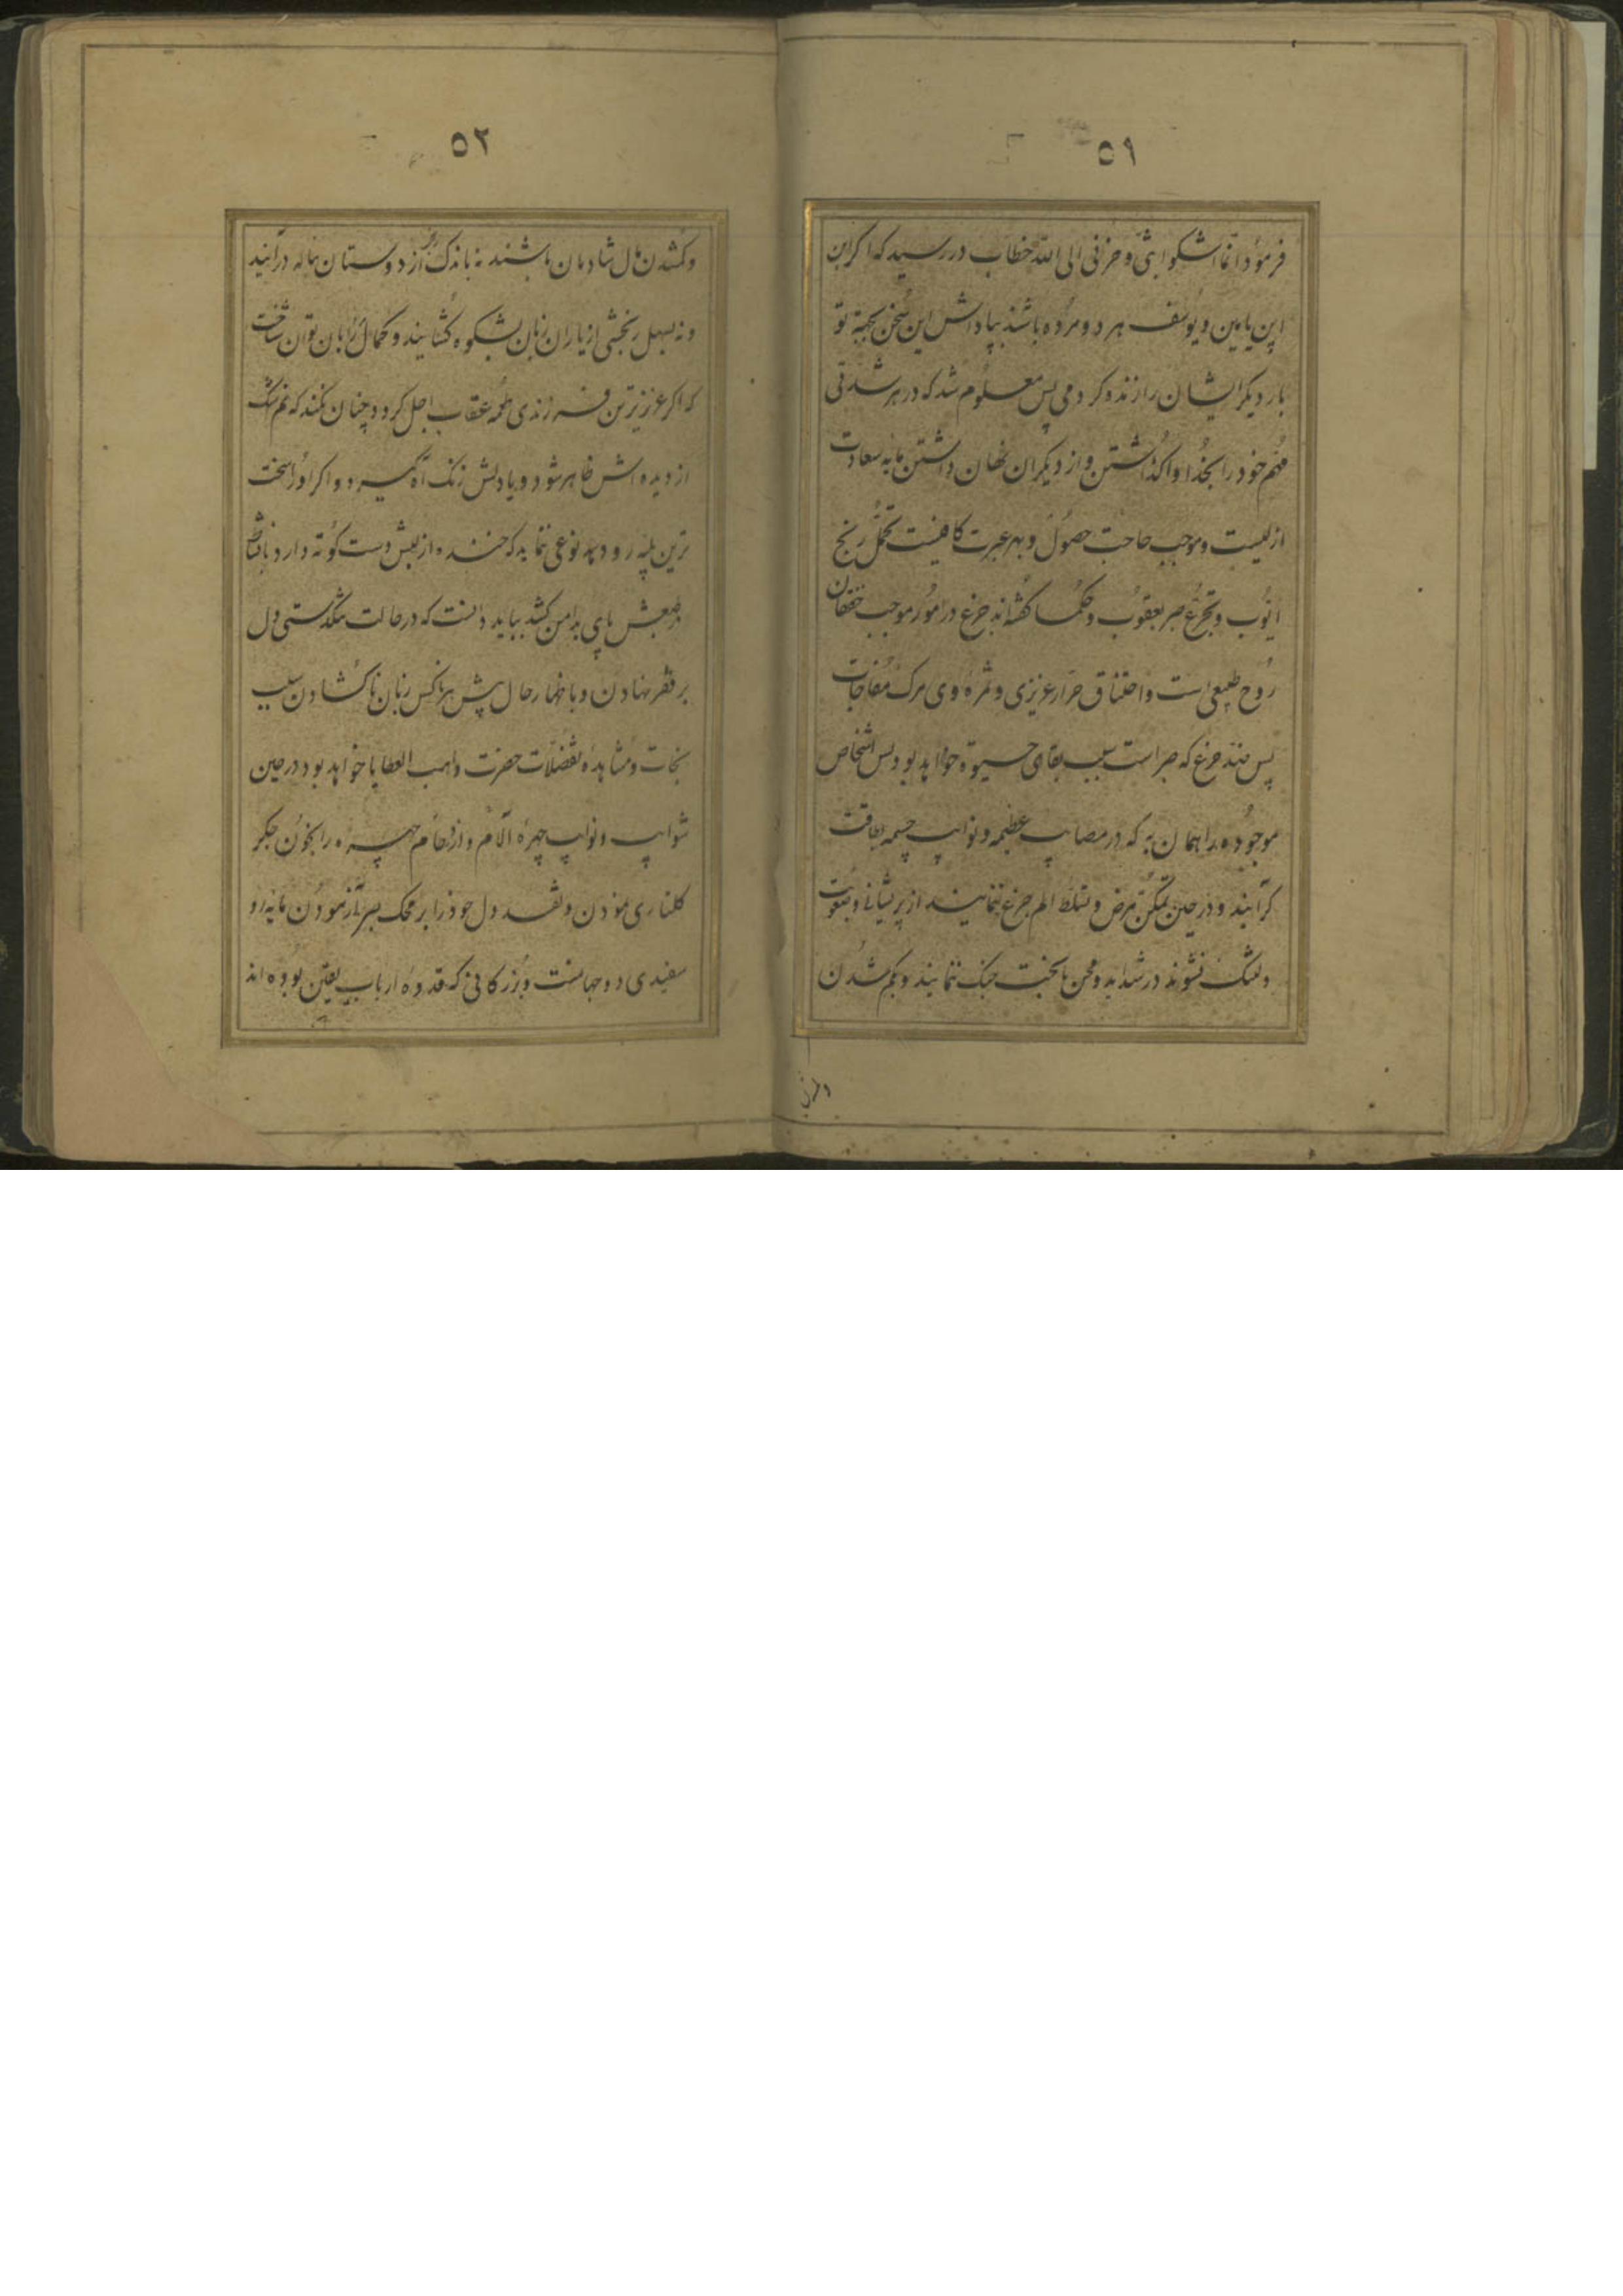 ٥١
فرمود انما اشکوا بثی و حزنی الی الله خطاب در رسید که اگر ابن
ابن یامین و یوسف هر دو مرده باشند بپاداش این سخن بجهة تو
بار دیگر ایشان را زنده کردمی پس معلوم شد که در هر شدتی
مهم خود را بخدا واگذاشتن و از دیگران نهان داشتن مایه سعادت
ازلیست و موجب حاجت حصول و بهر عبرت کافیست تحمل رنج
ایوب و تجرع صبر یعقوب و حکما گفته‌اند جزع در امور موجب خفقان
روح طبیعی است و اختناق حرار عزیزی و ثمره وی مرک مفاجات
پس ضد جزع که صبر است سبب بقای حیوة خواهد بود پس اشخاص
موجوده را همان به که در مصایب عظیمه و نوایب چسمه بطاقت
کرایند و در حین تمکن مرض و تسلط الم جزع ننمایند از پریشانی و صعوبت
دلتنک نشوند در شداید و محن با بخت جنک ننمایند و بکم شدن
٥٢
و کمشدن مال شادمان باشند نه باندک از دوستان بناله درآیند
و نه بسهل رنجشی از یاران زبان بشکوه کشایند و کمال را بان توان شناخت
که اکر عزیزترین فرزندی طعمه عقاب اجل کردد چنان نکند که نم اشک
از دیده اش ظاهر شود و یا دلش زنک آه کیرد و اکر او را سخت
ترین بلیه رو دهد نوعی ننماید که خنده از لبش دست کوته دارد یا نشاط
از طبعش پای بدامن کشد بباید دانست که در حالت تنکدستی دل
بر فقر نهادن و باظهار حال پیش هر ناکس زبان ناکشادن سبب
نجات و مشاهده تفضلات حضرت واهب العطایا خواهد بود در حین
شوایب و نوایب چهره آلام و ازدحام چهره را بخون جکر
کلناری نمودن و نقد دل خود را بر محک صبر آزمودن مایه رو
سفیدی دو جهانست و بزرکانی که قدوه ارباب یقین بوده اند